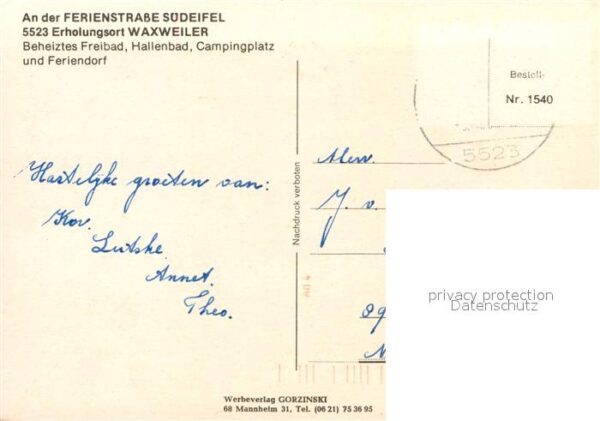 An der FERIENSTRAßE SÜDEIFEL
5523 Erholungsort WAXWEILER
Beheiztes Freibad, Hallenbad, Campingplatz
und Feriendorf
Hartelijke groeten van:
Kov.
Lutske.
Annet.
Theo.
Nachdruck verboten
Bestell-
Nr. 1540
5523
Mevr.
J. v.
privacy protection
Datenschutz
Werbeverlag GORZINSKI
68 Mannheim 31, Tel. (06 21) 75 36 95